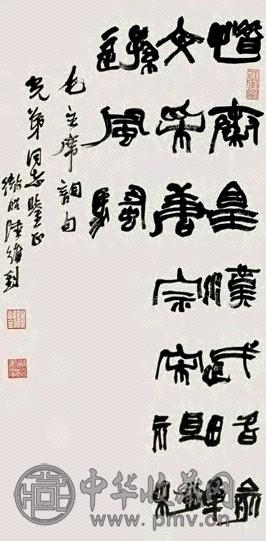 惜秦皇漢武略輸
文采唐宗宋祖稍
遜風騷
毛主席詞句
同志鑒正
微昭陸維釗
中华收藏网
www.pmv.cn